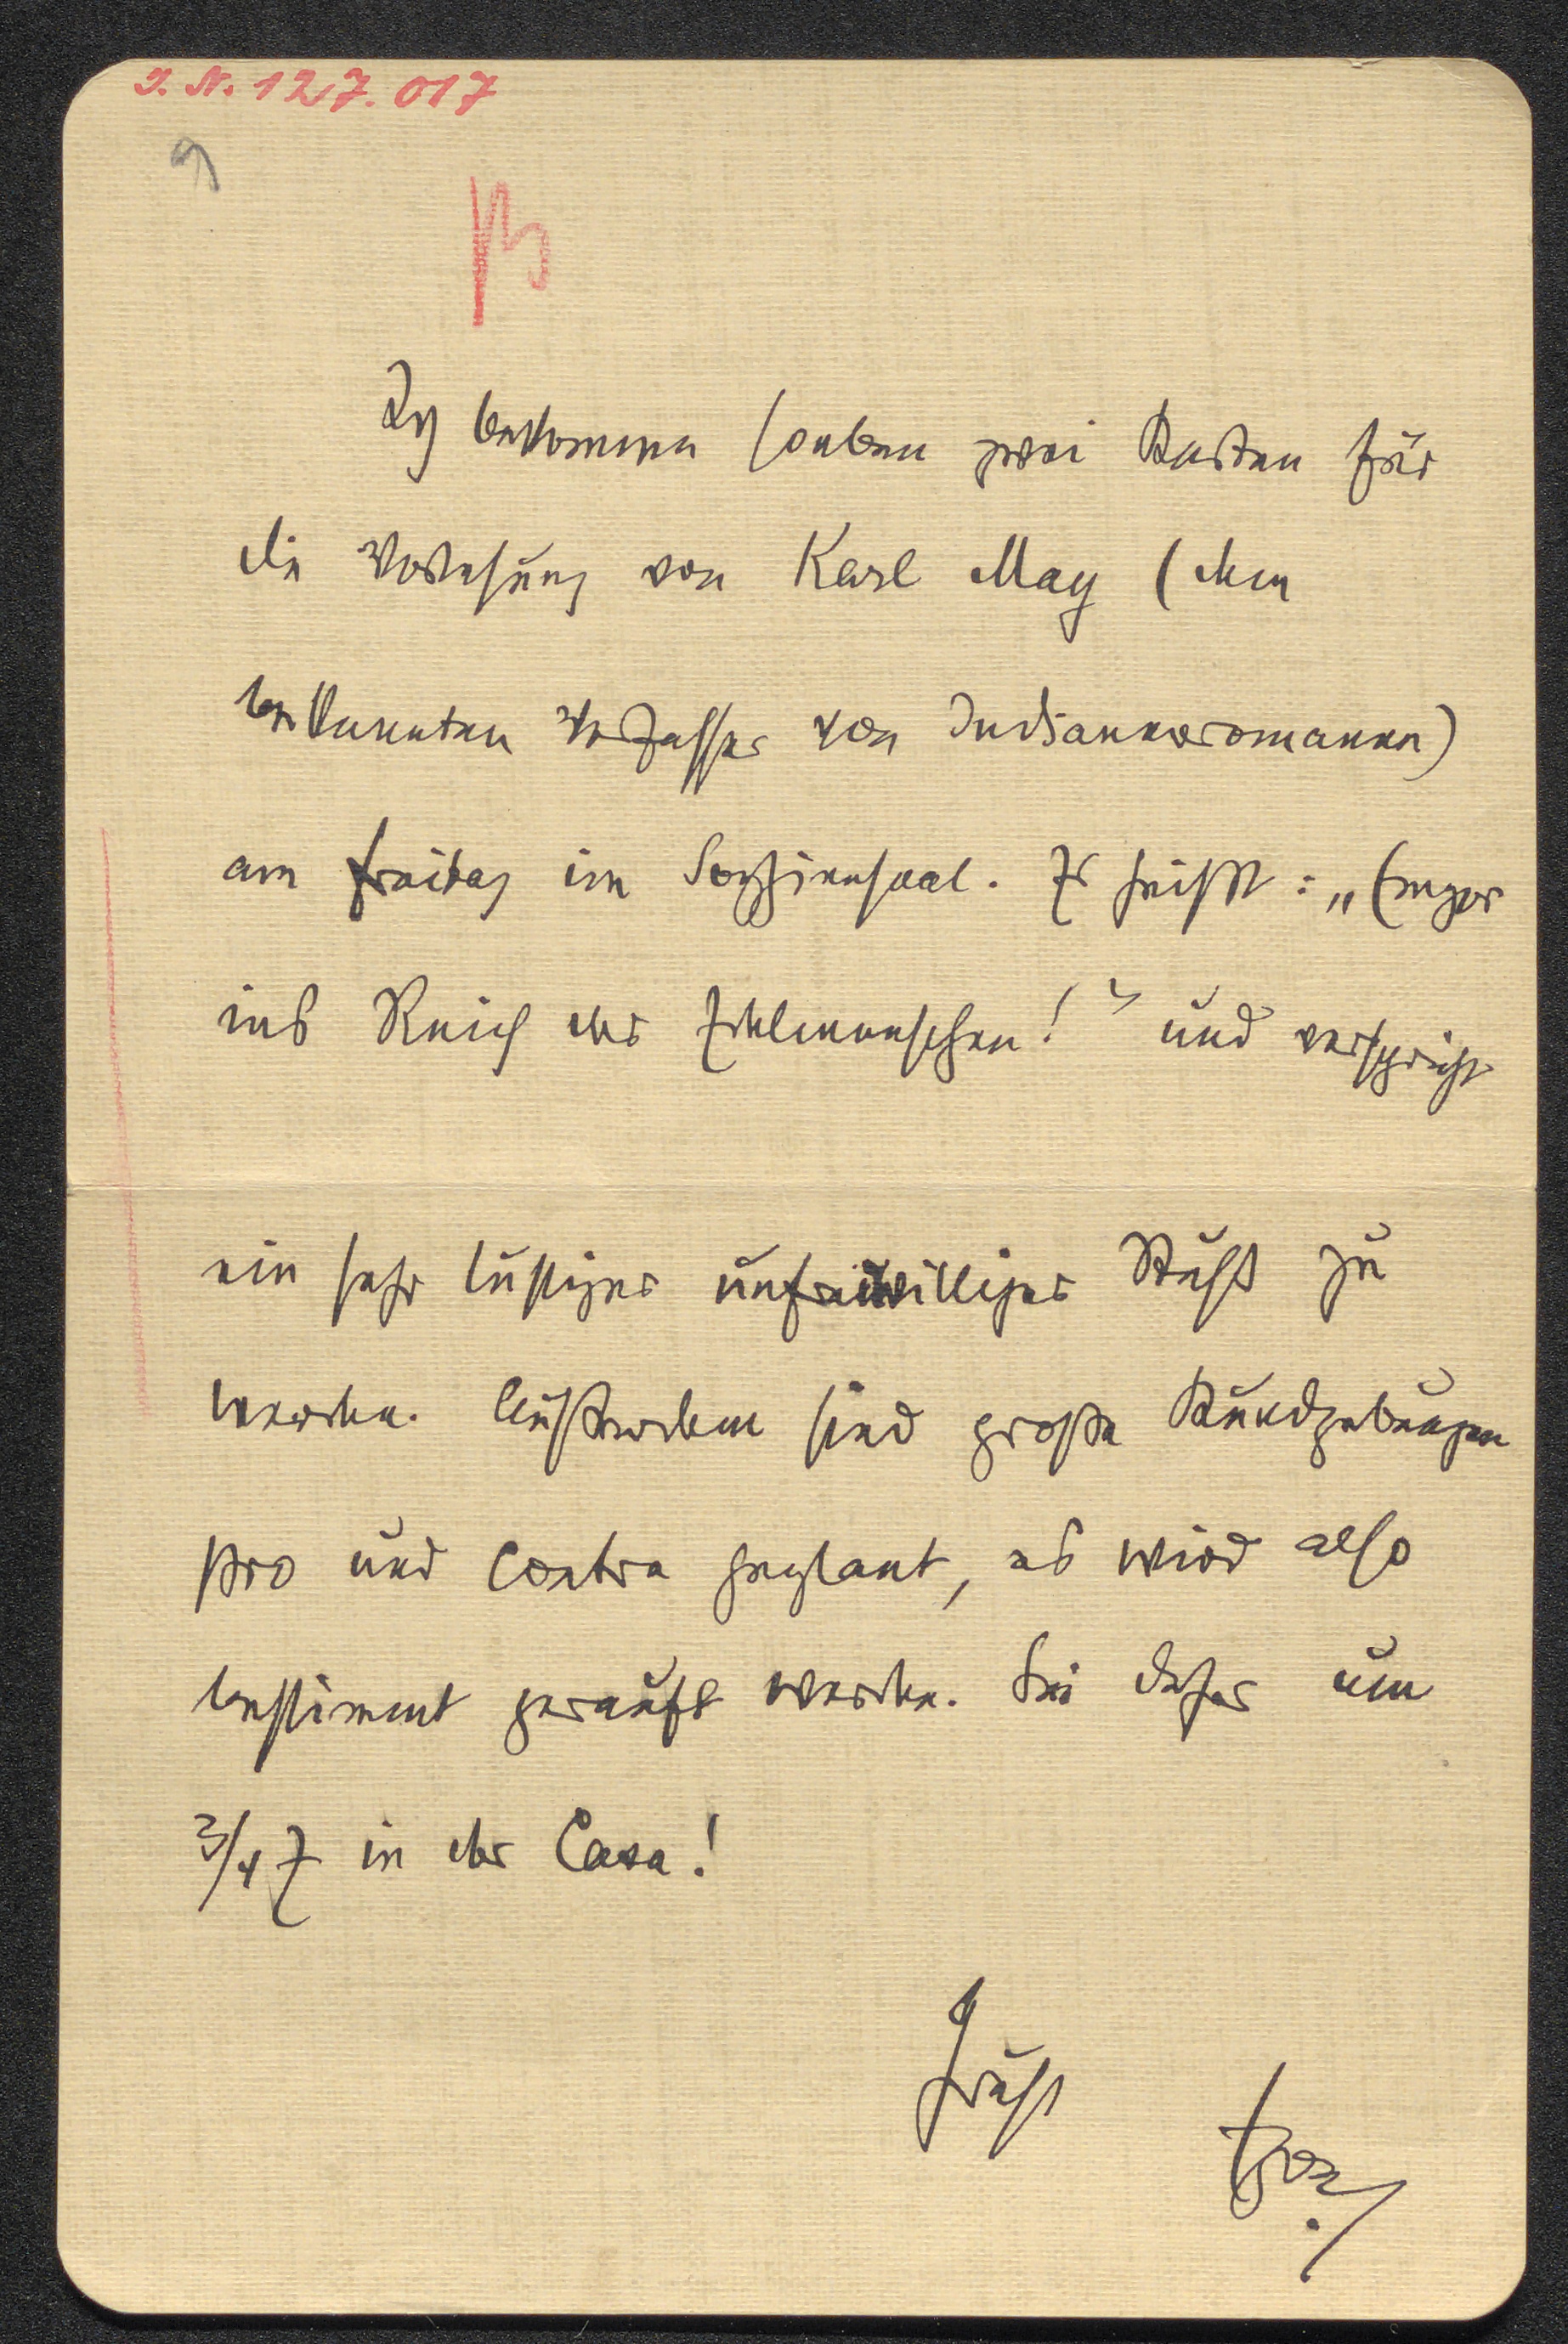 I. N. 127.017
9
Ich bekomme soeben zwei Karten für
die Vorlesung von Karl May (dem
bekannten Verfasser von Indianerromanen)
am Freitag im Sophiensaal. Er heißt: „Empor
ins Reich der Edelmenschen!“ und verspricht
ein sehr lustiger unfreiwilliger Stuß zu
werden. Außerdem sind große Kundgebungen
pro und contra geplant, es wird also
bestimmt gerauft werden. Sei daher um
3/4 7 in der Casa!
Gruß